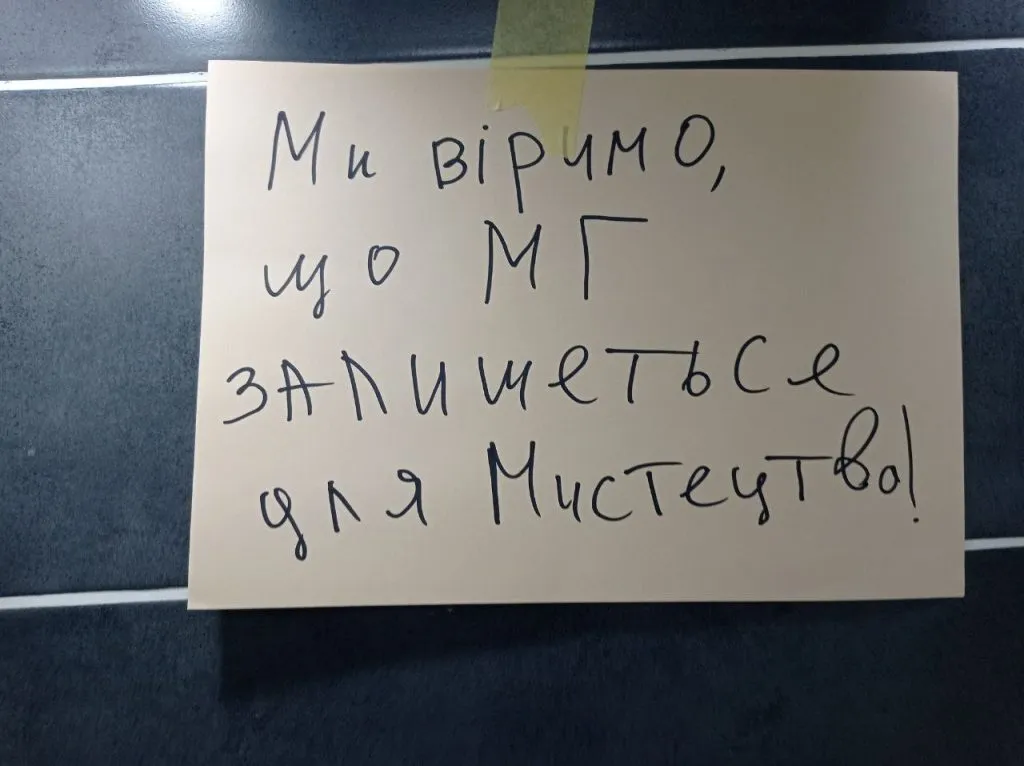 Ми віримо,
що МГ
залишеться
для Мистецтва!